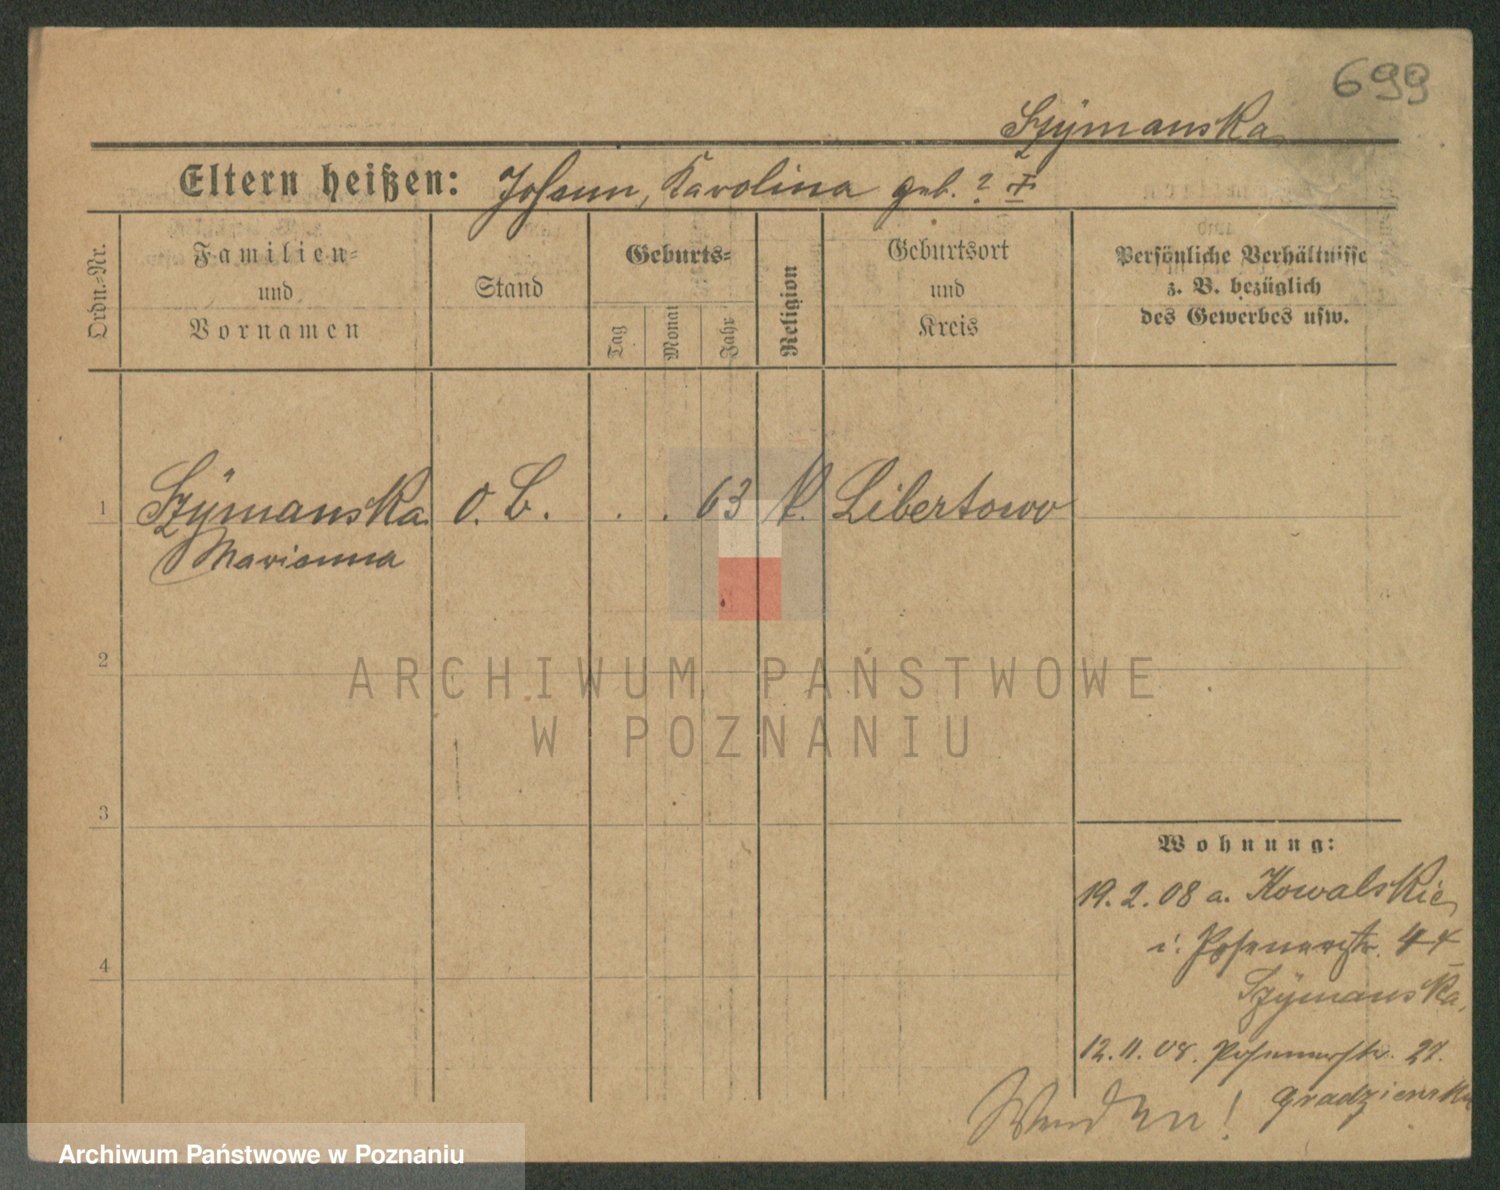 699
Szÿmanska
Eltern heißen: Johann, Karolina geb. ?
Ordn.-Nr.
Familien-
und
Vornamen
Stand
Geburts-
Tag
Monat
Jahr
Religion
Geburtsort
und
Kreis
Persönliche Verhältnisse
z. B. bezüglich
des Gewerbes usw.
1 Szÿmanska O. B. . . 63 K. Libertowo
Marianna
2
3
4
Wohnung:
19. 2. 08 a. Kowalskie
i. Posenerstr. 44
Szÿmanska
12. 11. 08. Posenerstr. 27.
Gradzienska
Wenden!
ARCHIWUM PAŃSTWOWE
W POZNANIU
Archiwum Państwowe w Poznaniu